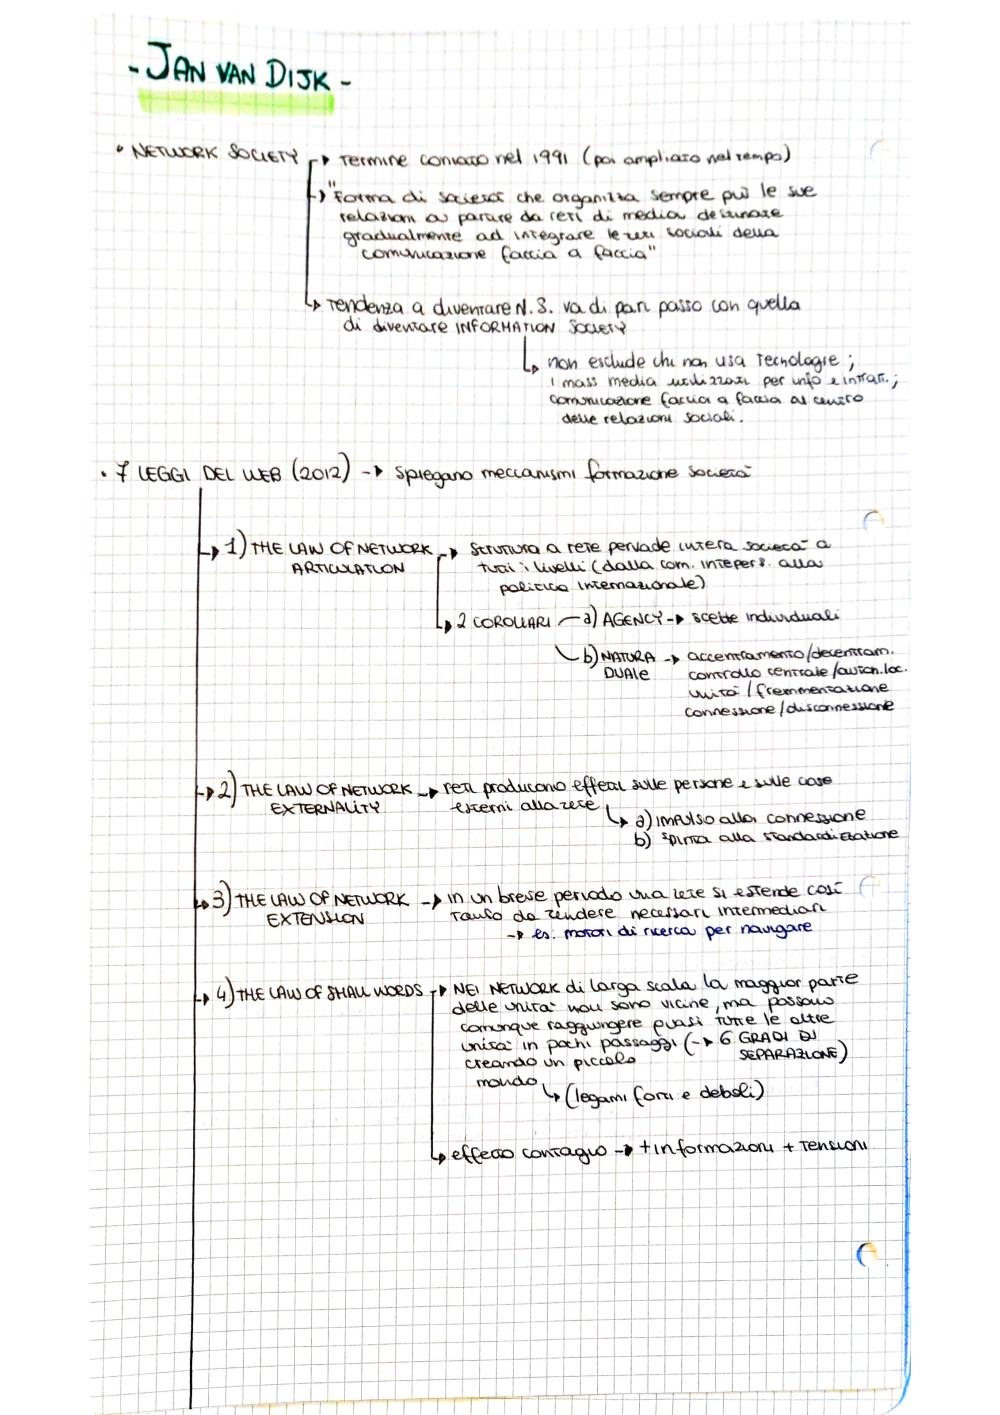 - JAN VAN DIJK -
• NETWORK SOCIETY → Termine coniato nel 1991 (poi ampliato nel tempo)
→ "Forma di società che organizza sempre più le sue
relazioni a partire da reti di media destinate
gradualmente ad integrare le reti sociali della
comunicazione faccia a faccia"
→ tendenza a diventare N. S. va di pari passo con quella
di diventare INFORMATION SOCIETY
↳ non esclude chi non usa tecnologie ;
i mass media utilizzati per info e intrat. ;
comunicazione faccia a faccia al centro
delle relazioni sociali.
• 7 LEGGI DEL WEB (2012) → spiegano meccanismi formazione società
→ 1) THE LAW OF NETWORK → struttura a rete pervade intera società a
ARTICULATION tutti i livelli (dalla com. interpers. alla
politica internazionale)
→ 2 COROLLARI — a) AGENCY → scelte individuali
b) NATURA → accentramento/decentram.
DUALE controllo centrale/auton.loc.
unità / frammentazione
connessione/disconnessione
→ 2) THE LAW OF NETWORK → reti producono effetti sulle persone e sulle cose
EXTERNALITY esterni alla rete ↳ a) impulso alla connessione
b) spinta alla standardizzazione
→ 3) THE LAW OF NETWORK → in un breve periodo una rete si estende così
EXTENSION tanto da rendere necessari intermediari
→ es. motori di ricerca per navigare
→ 4) THE LAW OF SMALL WORDS → NEI NETWORK di larga scala la maggior parte
delle unità non sono vicine, ma possono
comunque raggiungere quasi tutte le altre
unità in pochi passaggi (→ 6 GRADI DI
creando un piccolo SEPARAZIONE)
mondo ↳ (legami forti e deboli)
→ effetto contagio → + informazioni + tensioni